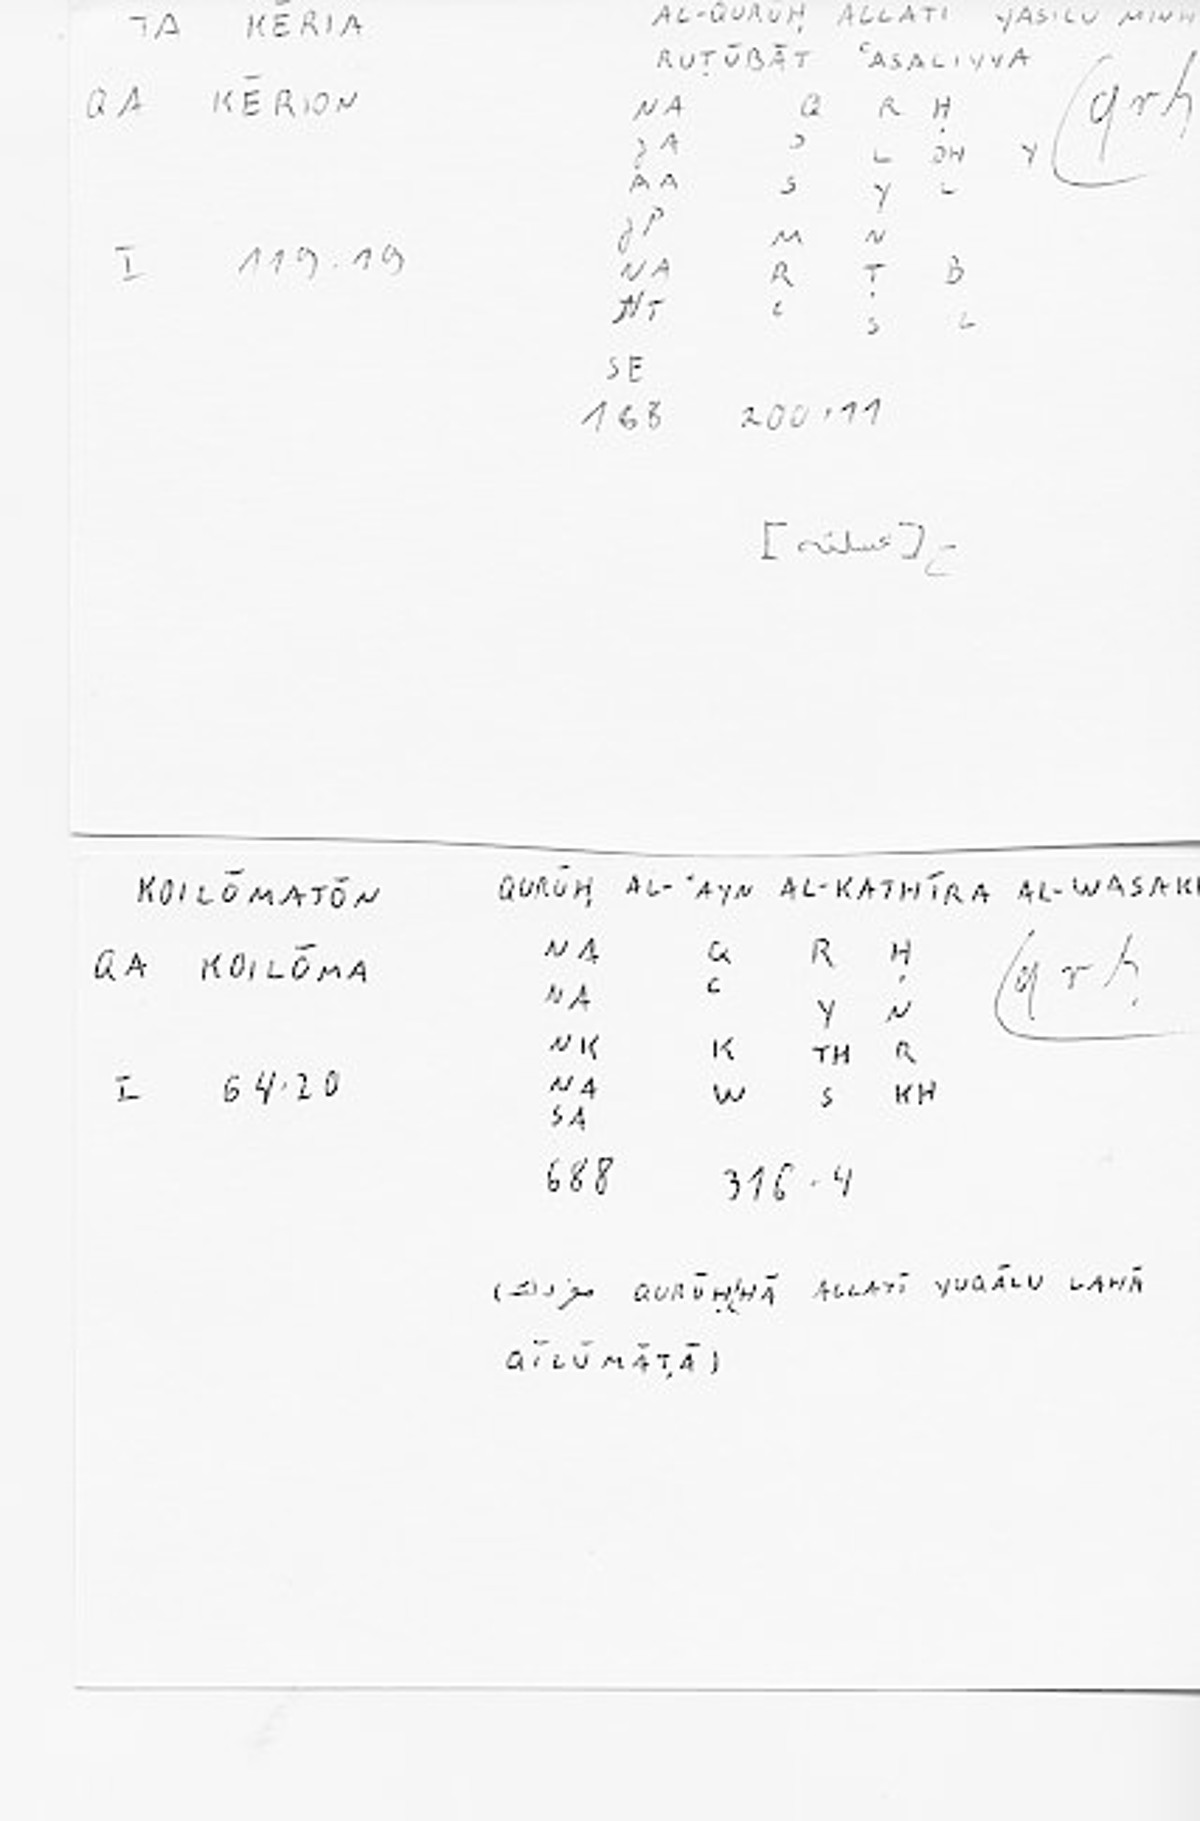 TA KĒRIA AL-QURŪḤ ALLATI YASILU MINH
RUṬŪBĀT ʿASALIYYA
QA KĒRION NA Q R Ḥ (qrḥ
JA L DH Y
AA S Y L
JP M N
I 119.19 NA R Ṭ B
NT ʿ S L
SE
168 200.11
KOILŌMATŌN QURŪḤ AL-ʿAYN AL-KATHĪRA AL-WASAKH
QA KOILŌMA NA Q R Ḥ (qrḥ
NA ʿ Y N
NK K TH R
I 64.20 NA W S KH
SA
688 316.4
QURŪḤHĀ ALLATĪ YUQĀLU LAHĀ
QĪLŪMĀṬĀ)